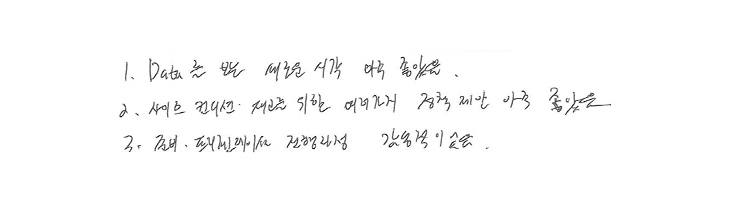 1. Data를 보는 새로운 시각 아주 좋았음.
2. 사이트 컨디션·제고를 위한 여러가지 정책 제안 아주 좋았음
3. 준비·프레젠테이션 진행과정 감동적이었음.